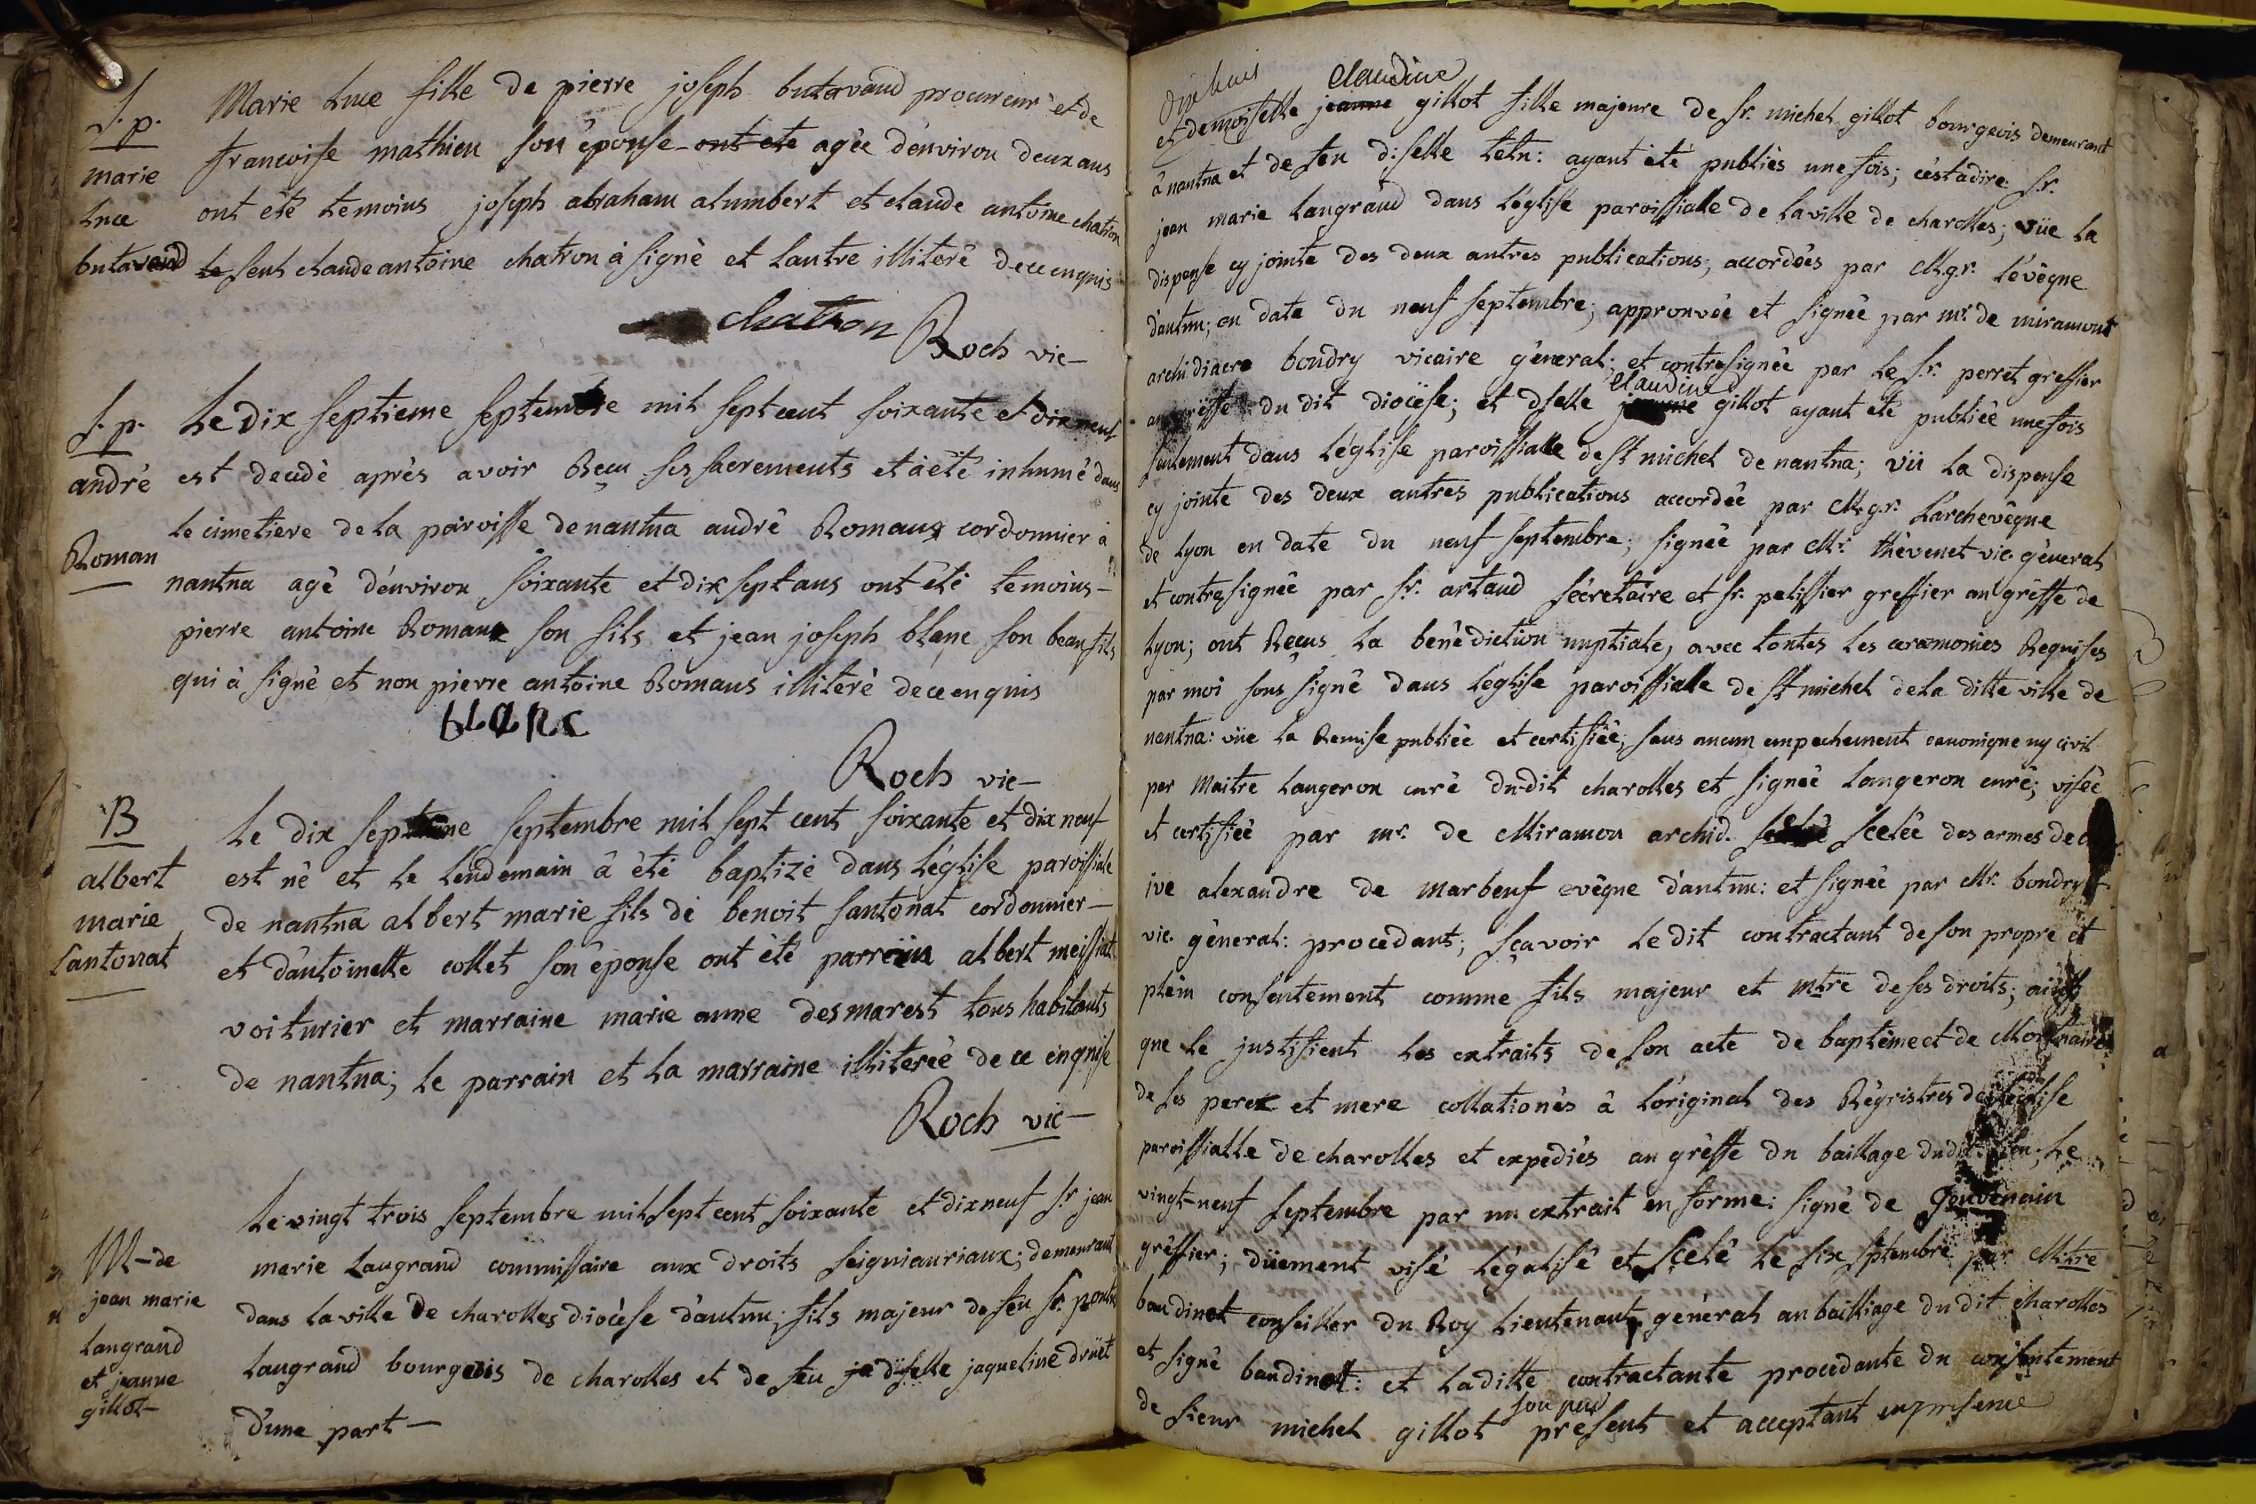 S. p.
marie
luce
butavand
Marie Luce fille de pierre joseph butavaud procureur et de
francoise mathieu son épouse ont ete agée d'environ deux ans
ont été temoins joseph abraham alumbert et claude antoine chatron
le seul claude antoine chatron à signé et lautre illiteré de ce enquis
chatron
Roch vic
S. p.
andré
Roman
Le dix septieme septembre mil sept cent soixante et dix neuf
est decedé après avoir Reçu ses sacrements et à été inhumé dans
le cimetiere de la paroisse de nantua andré Romans cordonnier à
nantua agé d'environ soixante et dix sept ans ont été temoins
pierre antoine Romans son fils et jean joseph blanc son beau fils
qui à signé et non pierre antoine Romans illiteré de ce enquis
blanc
Roch vic
B
albert
marie
santonat
Le dix septieme septembre mil sept cent soixante et dix neuf
est né et le lendemain à été baptizé dans léglise paroissiale
de nantua albert marie fils de benoit santonat cordonnier
et d'antoinette collet son épouse ont été parrein albert meissiat
voiturier et marraine marie anne desmarest tous habitants
de nantua; le parrain et la marraine illiterée de ce enquise
Roch vic
M de
jean marie
Langrand
et jeanne
gillot
Le vingt trois septembre mil sept cent soixante et dix neuf sr. jean
marie Langrand commissaire aux droits seigniauriaux; demeurant
dans la ville de charolles diocèse d'autun; fils majeur de feu sr.
Langrand bourgeois de charolles et de feu dlselle jaqueline drüet
d'une part
claudine
et demoiselle jeanne gillot fille majeure de sr. michel gillot bourgeois demeurant
à nantua et de feu d:selle tétu: ayant été publiés une fois; c'est à dire sr.
jean marie langrand dans l'église paroissialle de la ville de charolles; vüe la
dispense cy jointe des deux autres publications, accordées par Mgr. l'évêque
d'autun; en date du neuf septembre; approuvée et signée par mr. de miramont
archidiacre boudry vicaire géneral; et contresignée par le sr. perret greffier
claudine
au greffe du dit diocèse; et dselle jeanne gillot ayant été publiée une fois
seulement dans l'église paroissialle de st michel de nantua; vü la dispense
cy jointe des deux autres publications accordée par Mgr. l'archevêque
de lyon en date du neuf septembre; signée par Mr. thévenet vic géneral
et contresignée par sr. artaud sécretaire et sr. pelissier greffier au greffe de
Lyon; ont Reçus la bénédiction nuptiale, avec toutes les ceremonies Requises
par moi sous signé dans l'église paroissialle de st michel de la ditte ville de
nantua: vüe la Remise publiée et certifiée, sans aucun empechement canonique ny civil
par Maitre langeron curé dudit charolles et signée langeron curé; visée
et certifiée par mr. de Miramon archid. scelée des armes de
ive alexandre de marbeuf evêque d'autun: et signée par Mr. boudry
vic. géneral: procedant; sçavoir le dit contractant de son propre et
plein consentement comme fils majeur et mtre de ses droits; ainsi
que le justifient les extraits de son acte de baptême et de Mortuaire
de ses pere et mere collationés à l'original des Régristres de l'église
paroissialle de charolles et expediés au gréffe du baillage dudit lieu; le
vingt-neuf septembre par un extrait en forme: signé de
gréffier; düement visé légalisé et scelé le six septembre par Mtre
baudinot conseiller du Roy Lieutenant général au bailliage du dit charolles
et signé baudinot: et laditte contractante procedante du consentement
son pere
de sieur michel gillot présent et acceptant en presence